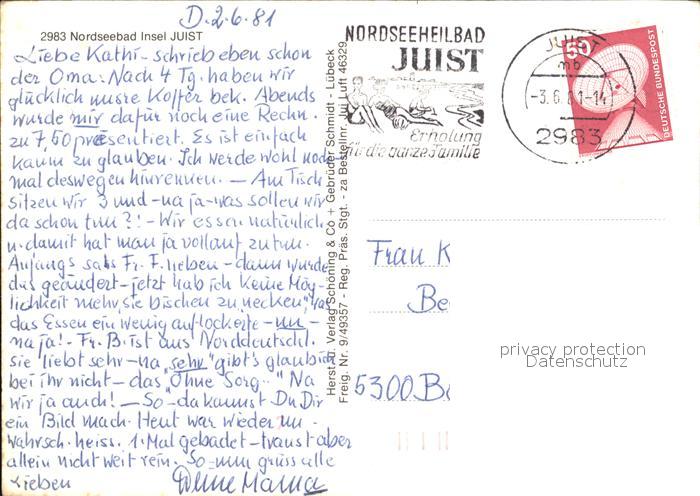 D. 2.6.81
2983 Nordseebad Insel JUIST
Liebe Kathi – schrieb eben schon
der Oma. Nach 4 Tg. haben wir
glücklich unsre Koffer bek. Abends
wurde mir dafür noch eine Rechn.
zu 7,50 präsentiert. Es ist einfach
kaum zu glauben. Ich werde wohl noch
mal deswegen hinrennen. – Am Tisch
sitzen wir 3 und – na ja – was sollen wir
da schon tun?! – Wir essen natürlich
u. damit hat man ja vollauf zu tun.
Anfangs sass Fr. F. neben – dann wurde
das geändert – jetzt hab ich keine Mög-
lichkeit mehr, sie bischen zu necken", was
das Essen ein wenig auflockerte – nun –
na ja! – Fr. B. ist aus Norddeutschl.
sie liebt sehr – na „sehr" gibt's glaub ich
bei ihr nicht – das „Ohne Sorg.." Na
wir ja auch! – So – da kannst Du Dir
ein Bild mach. Heut war wieder
wahrsch. heiss. 1. Mal gebadet – traust aber
allein nicht weit rein. So – nun grüss alle
Lieben Deine Mama
Herst. u. Verlag Schöning & Co + Gebrüder Schmidt - Lübeck
Freig. Nr. 9/49357 - Reg. Präs. Stgt. - za Bestellnr. Jui Luft 46329
NORDSEEHEILBAD
JUIST
Erholung
für die ganze Familie
JUIST
mb
-3.6.81-14
2983
50
DEUTSCHE BUNDESPOST
Frau K
Be
5300 B
privacy protection
Datenschutz